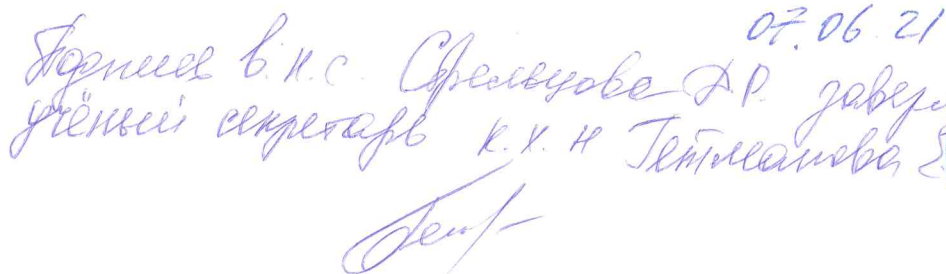 07.06.21
Подпись в.н.с. Стрельцова Д.Р. заверя
учёный секретарь к.х.н Гетманова Е